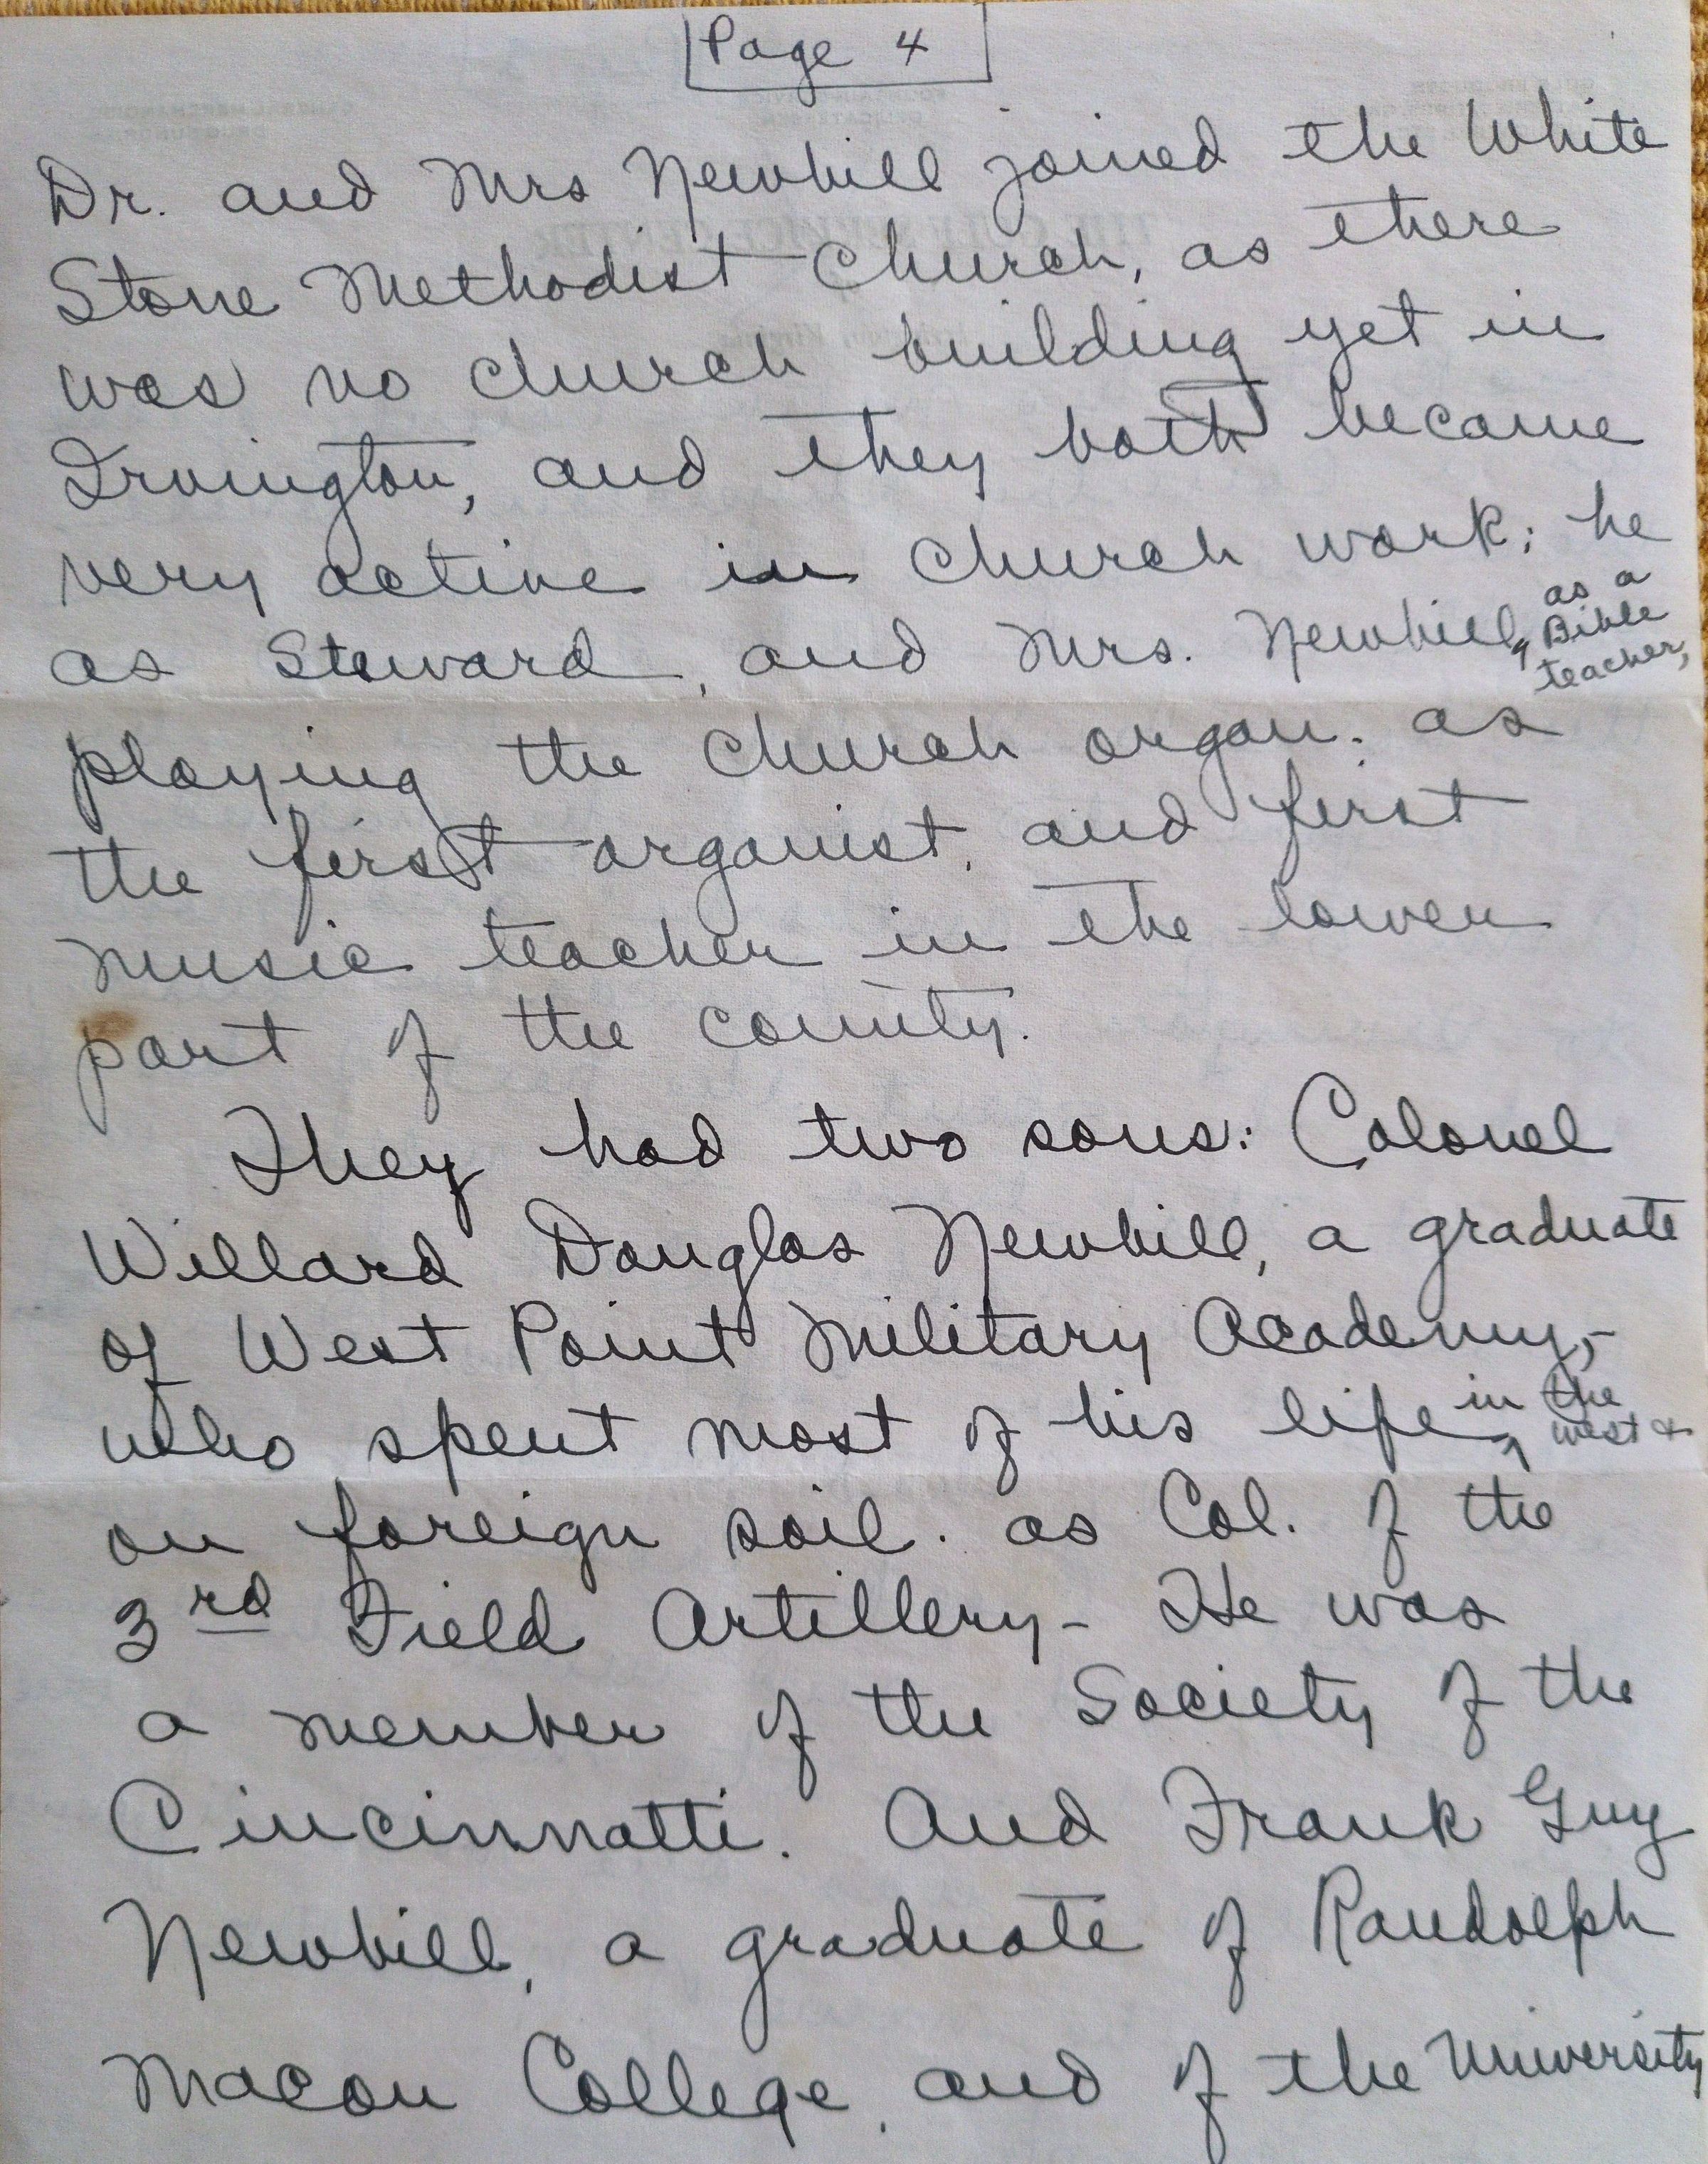 Page 4
Dr. and Mrs Newbill joined the White
Stone Methodist Church, as there
was no church building yet in
Irvington, and they both became
very active in church work; he
as Steward, and Mrs. Newbill, as a Bible teacher,
playing the church organ. as
the first organist, and first
music teacher in the lower
part of the county.
They had two sons: Colonel
Willard Douglas Newbill, a graduate
of West Point Military Academy,-
who spent most of his life in the west &
on foreign soil. as Col. of the
3rd Field Artillery- He was
a member of the Society of the
Cincinnatti. And Frank Guy
Newbill, a graduate of Randolph
Macon College, and of the University